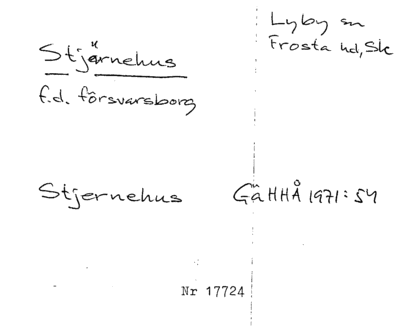 Lyby sn
Frosta hd, Sk
Stjärnehus
f.d. försvarsborg
Stjernehus GäHHÅ 1971:54
Nr 17724